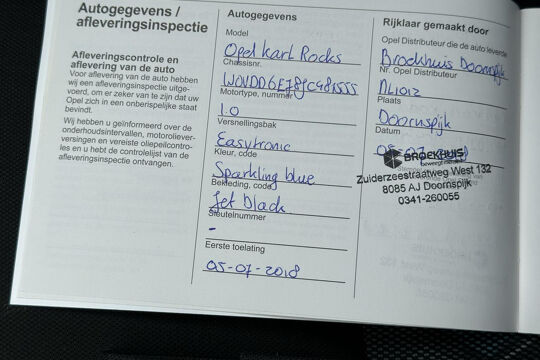 Autogegevens /
afleveringsinspectie
Afleveringscontrole en
aflevering van de auto
Voor aflevering van de auto hebben
wij een afleveringsinspectie uitge-
voerd, om er zeker van te zijn dat uw
Opel zich in een onberispelijke staat
bevindt.
Wij hebben u geïnformeerd over de
onderhoudsintervallen, motoroliever-
versingen en vereiste oliepeilcontro-
les en u hebt de controlelijst van de
afleveringsinspectie ontvangen.
Autogegevens
Model
Opel Karl Rocks
Chassisnr.
Motortype, nummer
1.0
Versnellingsbak
Easytronic
Kleur, code
Sparkling blue
Bekleding, code
Jet black
Sleutelnummer
-
Eerste toelating
05-07-2018
Rijklaar gemaakt door
Opel Distributeur die de auto leverde
Brockhuis Doornspijk
Nr. Opel Distributeur
NL1012
Plaats
Doornspijk
Datum
BROEKHUIS
beweegt mensen
Zuiderzeestraatweg West 132
8085 AJ Doornspijk
0341-260055